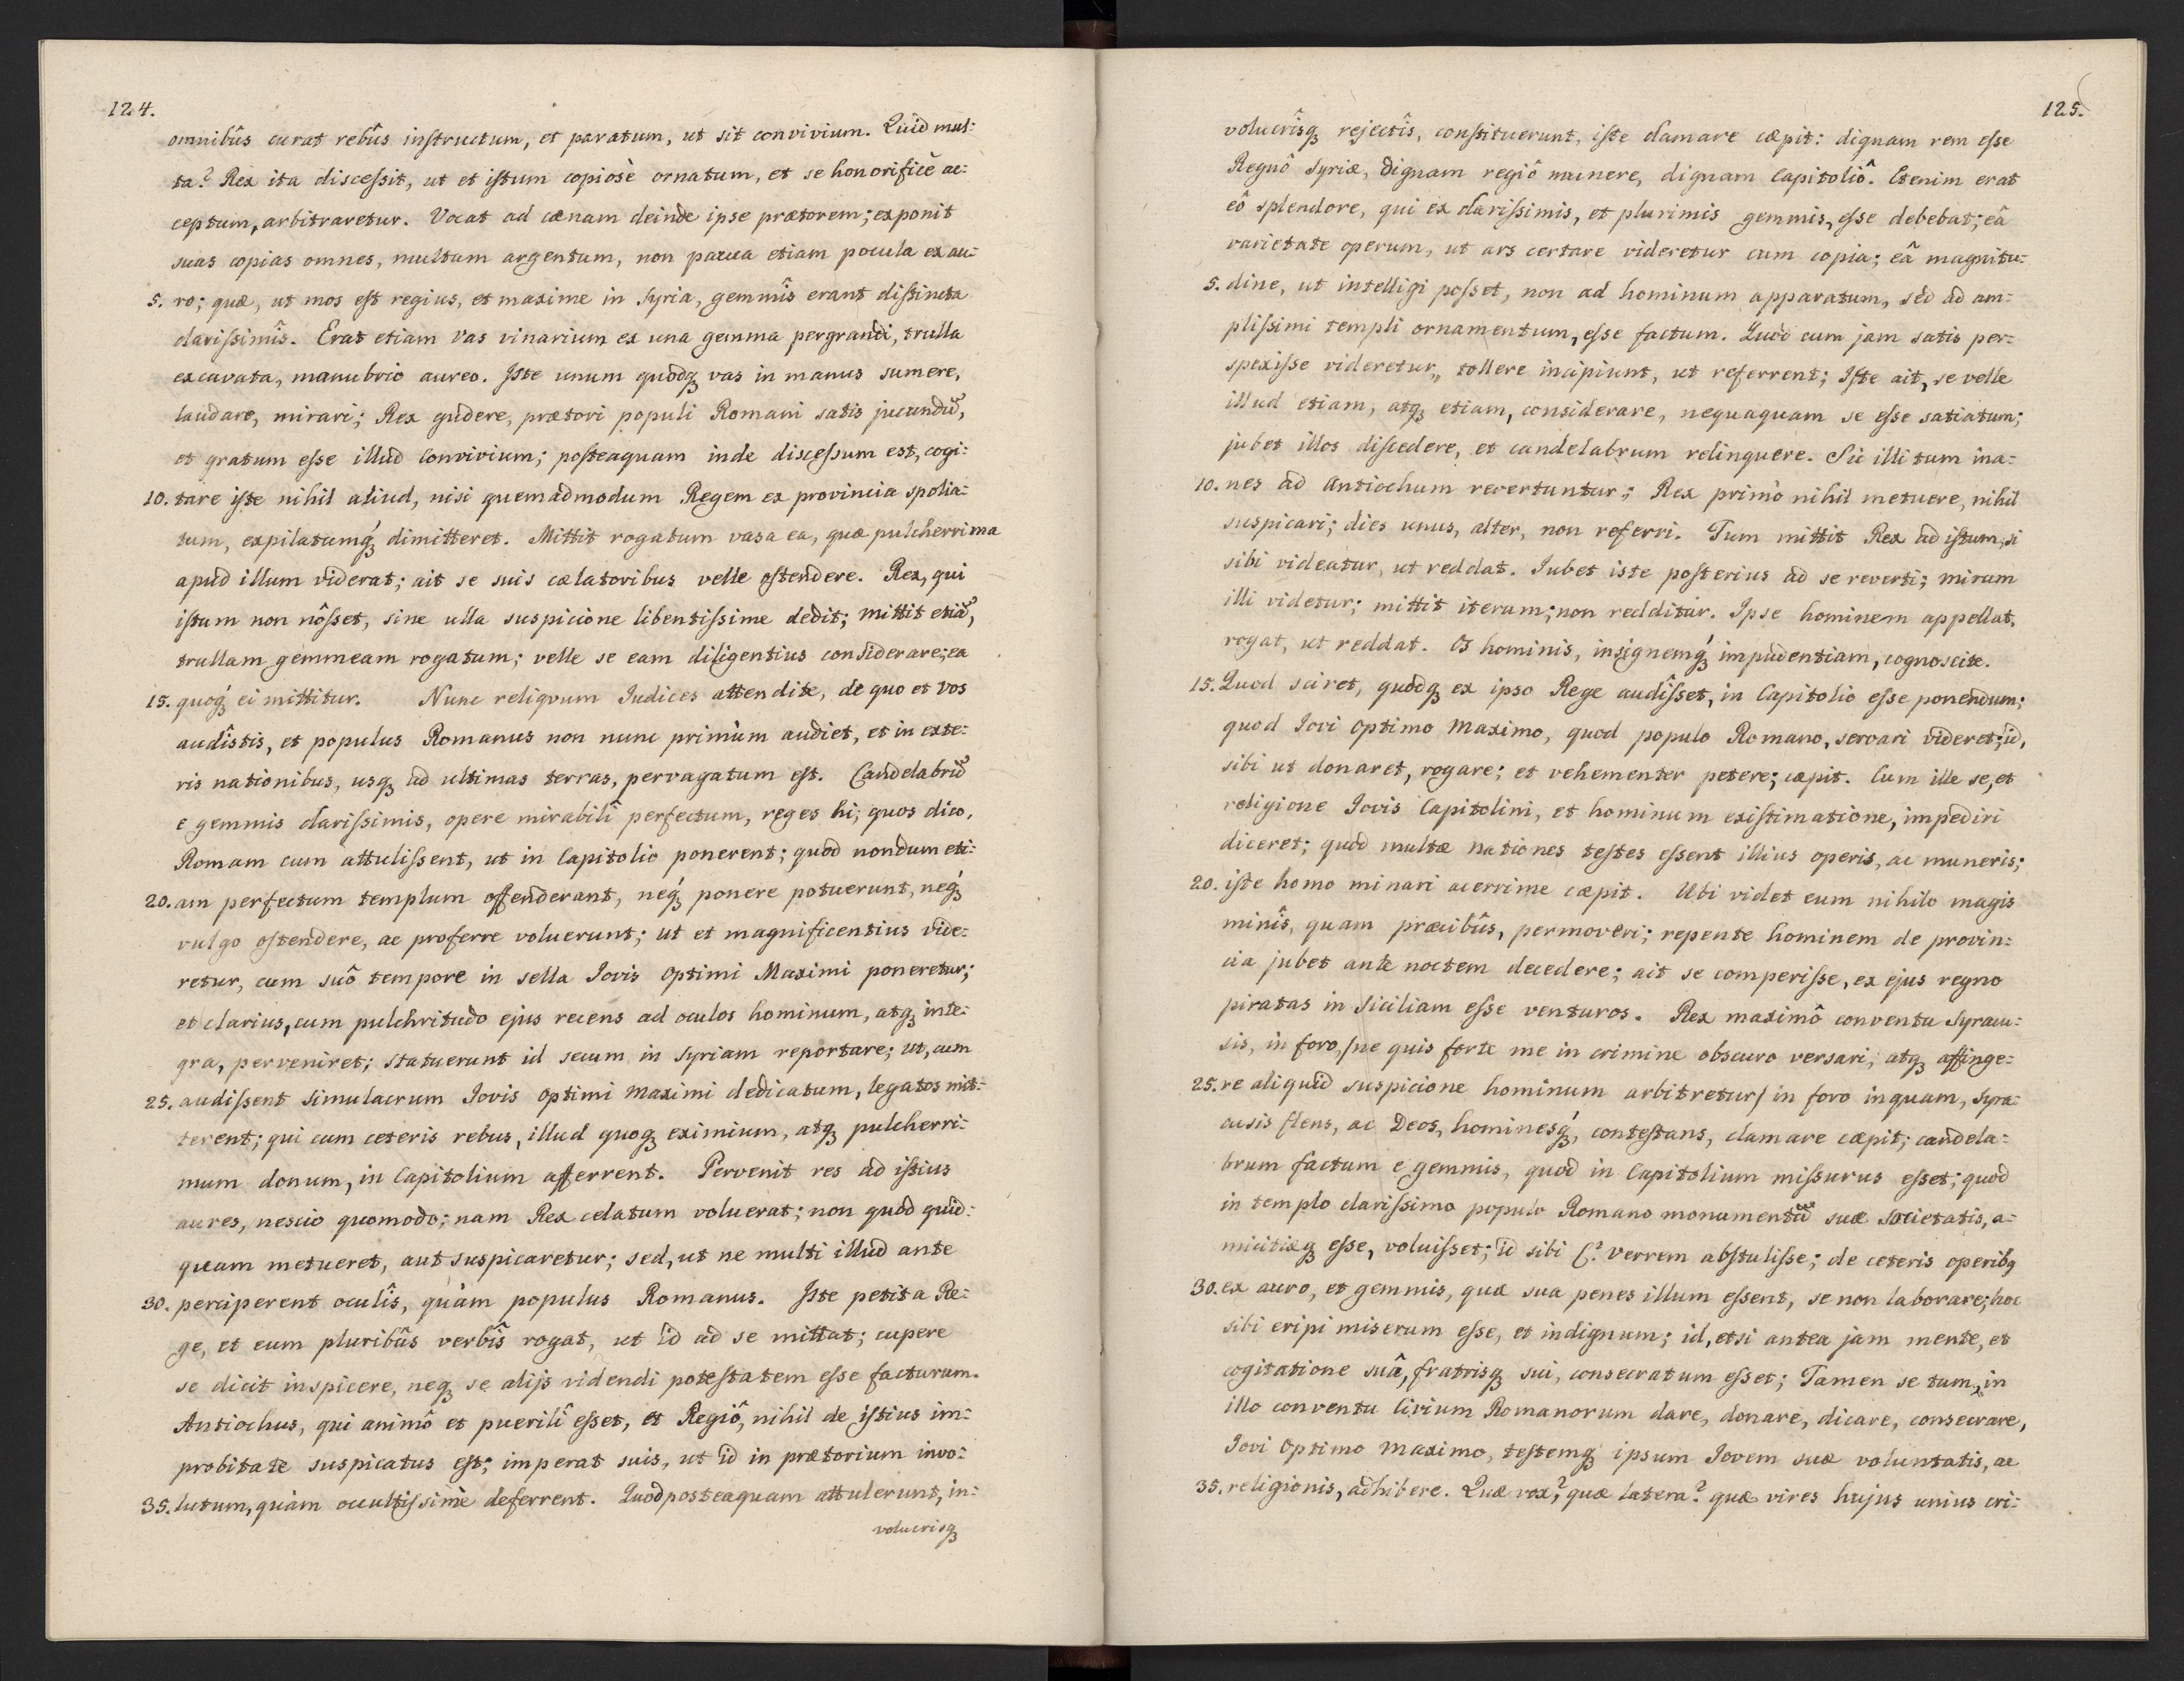 124.
omnibûs curat rebûs instructum, et paratum, ut sit convivium. Quid mul:
ta? Rex ita discessit, ut et istum copiosè ornatum, et se honorificè ac:
ceptum, arbitraretur. Vocat ad cænam deinde ipse prætorem; exponit
suas copias omnes, multum argentum, non pauca etiam pocula ex au:
5. ro; quæ, ut mos est regius, et maxime in Syria, gemmîs erant distincta
clarissimîs. Erat etiam vas vinarium ex una gemma pergrandi, trulla
excavata, manubrio aureo. Iste unum quodq3 vas in manus sumere,
laudare, mirari; Rex gudere, prætori populi Romani satis jucundũ,
et gratum esse illud convivium; posteaquam inde discessum est, cogi:
10. tare iste nihil aliud, nisi quemadmodum Regem ex provincia spolia:
tum, expilatumq́3 dimitteret. Mittit rogatum vasa ea, quæ pulcherrima
apud illum viderat; ait se suis cælatoribus velle ostendere. Rex, qui
istum non nôsset, sine ulla suspicione libentissime dedit; mittit etiã,
trullam gemmeam rogatum; velle se eam diligentius considerare; ea
15. quoq́3 ei mittitur. Nunc reliquum Iudices attendite, de quo et vos
audîstis, et populus Romanus non nunc primùm audiet, et in exte:
ris nationibus, usq3 ad ultimas terras, pervagatum est. Candelabrũ
e gemmis clarissimis, opere mirabilî perfectum, reges hi, quos dico,
Romam cum attulissent, ut in Capitolio ponerent; quod nondum eti:
20. am perfectum templum offenderant, neq́3 ponere potuerunt, neq́3
vulgo ostendere, ac proferre voluerunt; ut et magnificentius vide:
retur, cum suô tempore in sella Iovis optimi Maximi poneretur;
et clarius, cum pulchritudo ejus recens ad oculos hominum, atq3 inte:
gra, perveniret; statuerunt id secum in Syriam reportare; ut, cum
25. audissent simulacrum Iovis optimi maximi dedicatum, legatos mit:
terent; qui cum ceteris rebus, illud quoq3 eximium, atq3 pulcherri:
mum donum, in Capitolium afferrent. Pervenit res ad istius
aures, nescio quomodo; nam Rex celatum voluerat; non quod quid:
quam metueret, aut suspicaretur; sed, ut ne multi illud ante
30. perciperent oculîs, quàm populus Romanus. Iste petit a Re:
ge, et eum pluribûs verbîs rogat, ut id ad se mittat; cupere
se dicit inspicere, neq3 se alijs videndi potestatem esse facturum.
Antiochus, qui animô et puerilî esset, et Regiô, nihil de istius im:
probitate suspicatus est; imperat suis, ut id in prætorium invo:
35. lutum, quàm occultissimè deferrent. Quod posteaquam attulerunt, in:
volucrisq3
125.
volucrîsq3 rejectîs, constituerunt, iste clamare cæpit: dignam rem esse
Regnô Syriæ, dignam regiô munere, dignam Capitoliô. Etenim erat
eô splendore, qui ex clarissimis, et plurimis gemmis, esse debebat; eâ
varietate operum, ut ars certare videretur cum copia; eâ magnitu:
5. dine, ut intelligi posset, non ad hominum apparatum, sed ad am:
plissimi templi ornamentum, esse factum. Quod cum jam satis per:
spexisse videretur, tollere incipiunt, ut referrent; Iste ait, se velle
illud etiam, atq3 etiam, considerare, nequaquam se esse satiatum;
jubet illos discedere, et candelabrum relinquere. Sic illi tum ina:
10. nes ad Antiochum revertuntur; Rex primò nihil metuere, nihil
suspicari; dies unus, alter, non referri. Tum mittit Rex ad istum, si
sibi videatur, ut reddat. Iubet iste posterius ad se reverti; mirum
illi videtur; mittit iterum; non redditur. Ipse hominem appellat,
rogat, ut reddat. Os hominis, insignemq́3 impudentiam, cognoscite.
15. Quod sciret, quodq3 ex ipso Rege audîsset, in Capitolio esse ponendum;
quod Iovi optimo Maximo, quod populo Romano, servari videret; id,
sibi ut donaret, rogare; et vehementer petere; cæpit. Cum ille se, et
religione Iovis Capitolini, et hominum existimatione, impediri
diceret; quod multæ nationes testes essent illius operis, ac muneris;
20. iste homo minari acerrime cæpit. Ubi videt eum nihilo magis
minîs, quam precibûs, permoveri; repente hominem de provin:
cia jubet ante noctem decedere; ait se comperisse, ex ejus regno
piratas in Siciliam esse venturos. Rex maximô conventu Syracu:
sis, in foro, /ne quis forte me in crimine obscuro versari, atq3 affinge:
25. re aliquid suspicione hominum arbitretur/ in foro inquam, Syra:
cusis flens, ac Deos, hominesq́3, contestans, clamare cæpit; candela:
brum factum e gemmis, quod in Capitolium missurus esset; quod
in templo clarissimo populo Romano monumentũ suæ societatis, a:
micitiæq3 esse, voluisset; id sibi C. verrem abstulisse; de ceteris operibq3
30. ex auro, et gemmis, quæ sua penes illum essent, se non laborare; hoc
sibi eripi miserum esse, et indignum; id, etsi antea jam mente, et
cogitatione suâ, fratrisq3 sui, consecratum esset; Tamen se tum, in
illo conventu civium Romanorum dare, donare, dicare, consecrare,
Iovi Optimo Maximo, testemq3 ipsum Iovem suæ voluntatis, ac
35. religionis, adhibere. Quæ vox? quæ latera? quæ vires hujus unius cri: